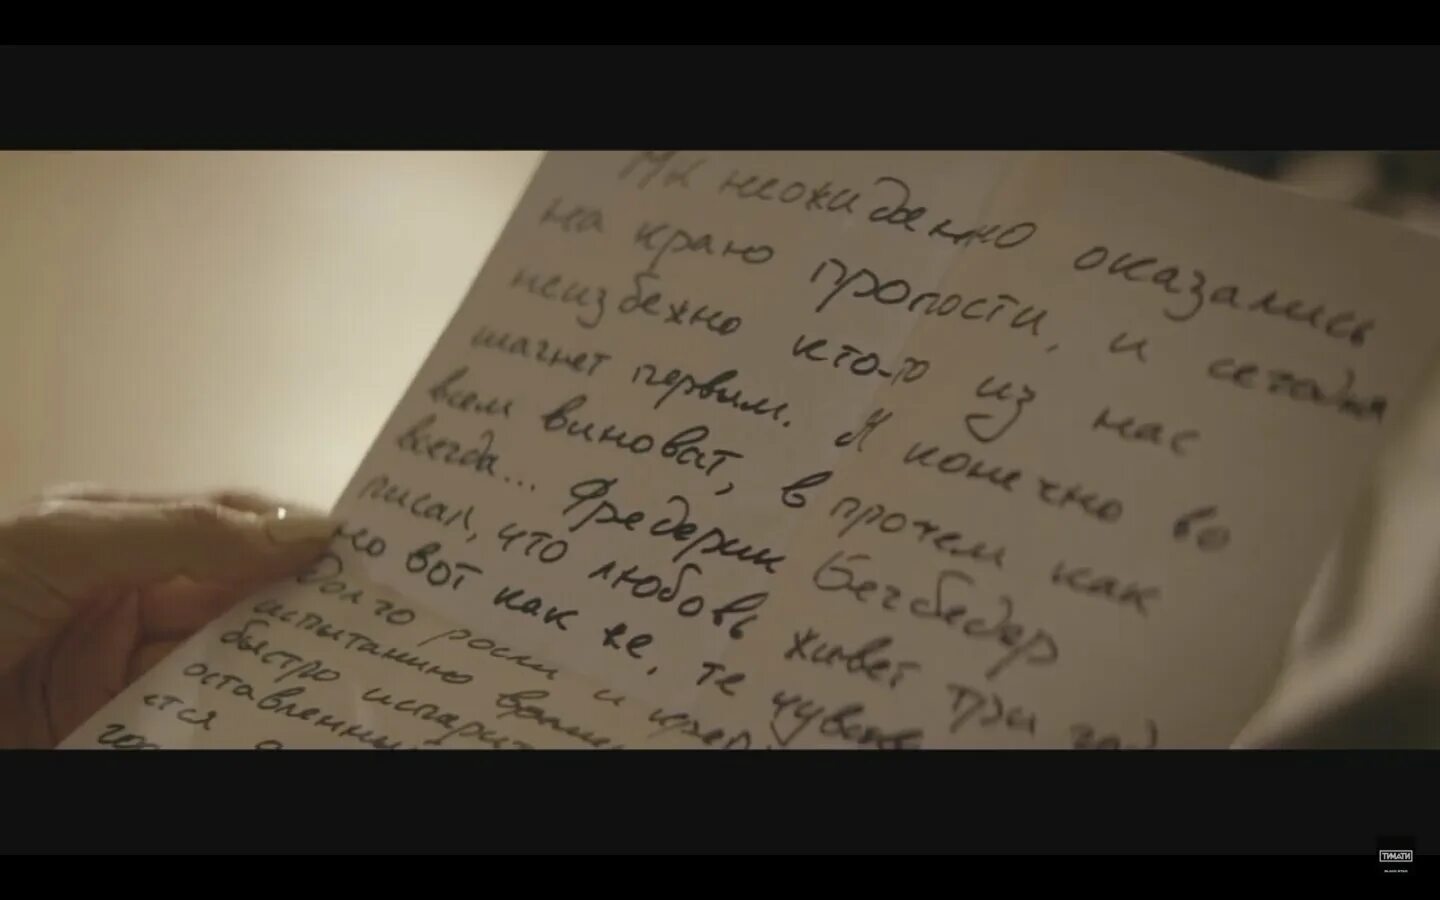 Мы неожиданно оказались
на краю пропости, и сегодня
неизбежно кто-то из нас
шагнет первым. Я конечно во
всем виноват, в прочем как
всегда... Фредерик Бегбедер
писал, что любовь живет три год
но вот как же, те чувства
долго росли и креп
испытанию време
быстро испарит
оставленни
ся
ТИМАТИ
BLACK STAR